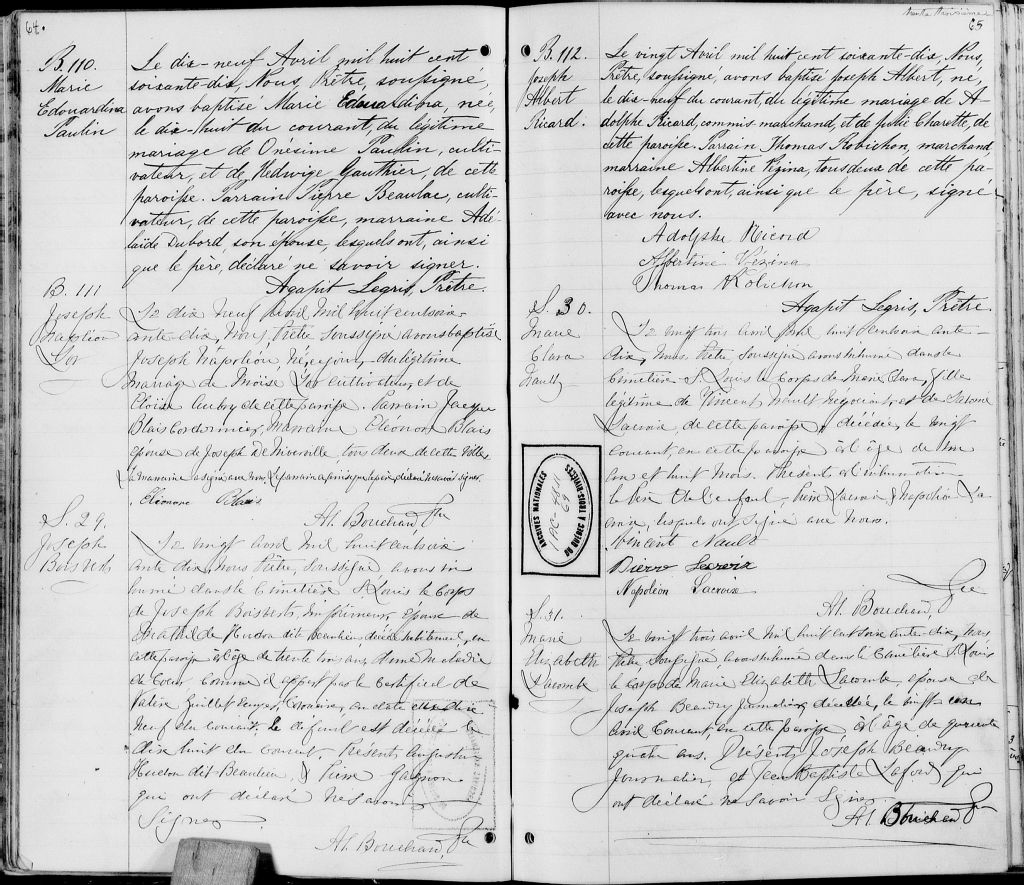 64.
B. 110.
Marie
Edouardina
Paulin
Le dix-neuf Avril mil huit cent
soixante-dix, Nous, Prêtre, soussigné,
avons baptisé Marie Edouardina, née,
le dix-huit du courant, du légitime
mariage de Onésime Paulin, culti-
vateur, et de Hedwige Gauthier, de cette
paroisse. Parrain Pierre Beaulac, culti-
vateur, de cette paroisse, marraine Adé-
laide Dubord, son épouse, lesquels ont, ainsi
que le père, déclaré ne savoir signer.
Agapit Legris, Prêtre.
B. 111
Joseph
Napoléon
Lor
Le dix neuf Avril Mil huit cent soix-
ante-dix, Nous Prêtre Soussigné avons baptisé
Joseph Napoléon, Né, ce jour, du légitime
mariage de Moïse Lor cultivateur, et de
Eloïse Aubry de cette paroisse. Parrain Jacques
Blais Cordonnier, Marraine Eléonore Blais
épouse de Joseph De Niverville tous deux de cette ville
la marraine a signé avec nous, le parrain ainsi que le père déclaré ne savoir signer.
Eléonore Blais
At. Bouchard, Ptre
S. 29.
Joseph
Boisvert
Le vingt avril Mil huit cent soix-
ante dix, Nous Prêtre, Soussigné avons in-
humé dans le Cimetière St Louis le Corps
de Joseph Boisvert, Imprimeur, époux de
Mathilde Hudon dit Beaulieu décédé subitement, en
cette paroisse à l'âge de trente trois ans, d'une maladie
de Coeur Comme il appert par le Certificat de
Valère Guillet Ecuyer, Coronaire, en date du dix
neuf du courant. Le défunt est décédé le
dix huit du Courant. Présents Augustin
Hudon dit Beaulieu, & Pierre Gagnon
qui ont déclaré ne savoir
Signer
At. Bouchard, Ptre
65
B. 112.
Joseph
Albert
Ricard.
Le vingt Avril mil huit cent soixante-dix, Nous,
Prêtre, soussigné, avons baptisé Joseph Albert, né,
le dix-neuf du courant, du légitime mariage de A-
dolphe Ricard, commis marchand, et de Julie Charette, de
cette paroisse. Parrain Thomas Robichon, marchand
marraine Albertine Vézina, tous deux de cette pa-
roisse, lesquels ont, ainsi que le père, signé
avec nous.
Adolphe Ricard
Albertine Vézina
Thomas Robichon
Agapit Legris, Prêtre.
S. 30.
Marie
Clara
Nault
Le vingt trois Avril Mil huit Cent soix ante-
dix, Nous, Prêtre Soussigné avons inhumé dans le
Cimetière St Louis le Corps de Marie Clara, fille
légitime de Vincent Nault négociant, et de Salomé
Lacroix de cette paroisse, décédée, le vingt
courant, en cette paroisse à l'âge de un
an et huit mois. Présents à l'inhumation
le Père de l'enfant, Pierre Lacroix & Napoléon La-
croix, lesquels ont Signé avec Nous.
Vincent Nault
Pierre Lacroix
Napoléon Lacroix
At. Bouchard, Ptre
S. 31.
Marie
Elisabeth
Lacombe
Le vingt trois avril Mil huit cent soix ante-dix, Nous
Prêtre Soussigné, avons inhumé dans le Cimetière St Louis
le Corps de Marie Elizabeth Lacombe, épouse de
Joseph Beaudry Journalier, décédée, le vingt un
Avril Courant en cette paroisse, à l'âge de quarante
quatre ans. Présents Joseph Beaudry
Journalier, et Jean Baptiste Laford qui
ont déclaré ne savoir Signer
At. Bouchard Ptre
ARCHIVES NATIONALES
DU QUÉBEC À TROIS-RIVIÈRES